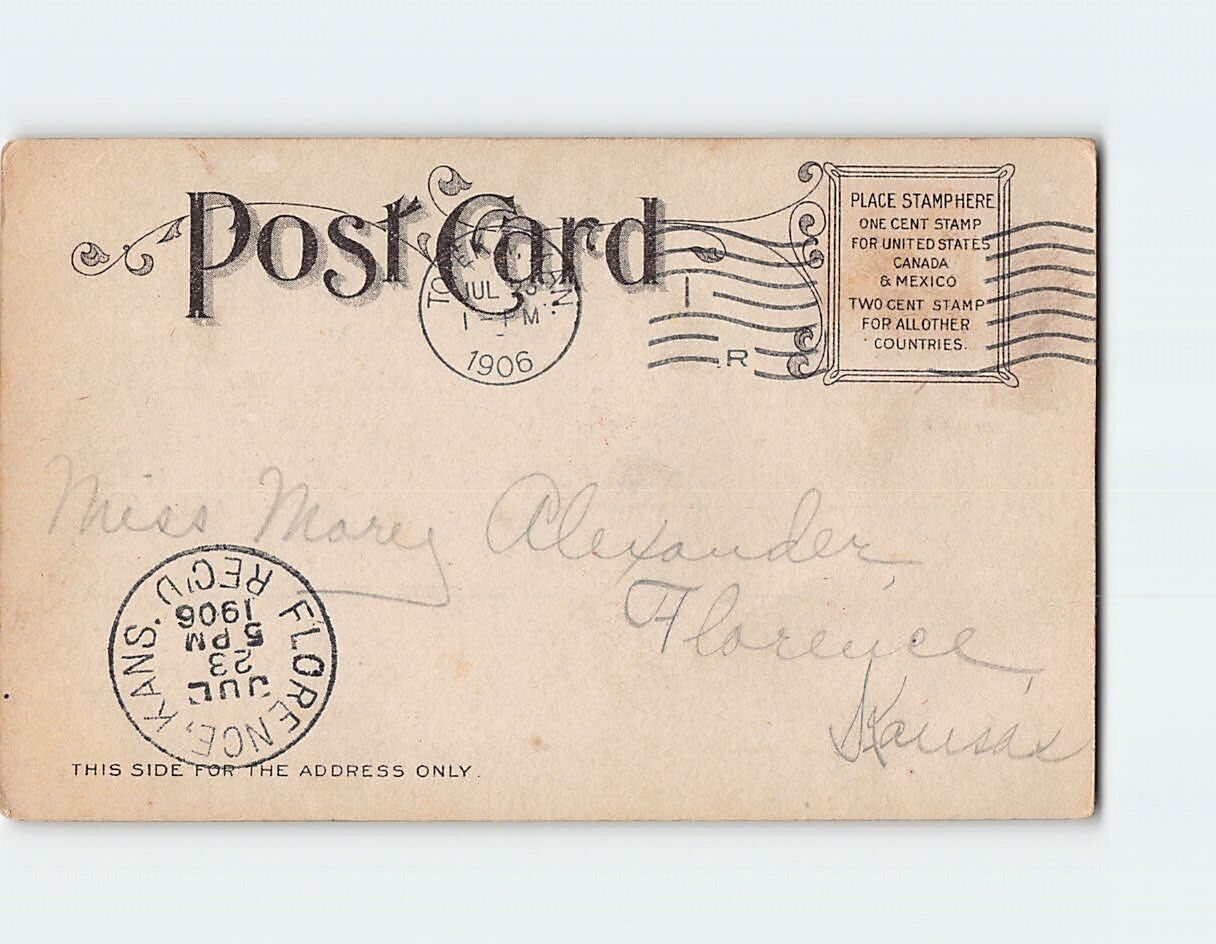 Post Card
PLACE STAMP HERE
ONE CENT STAMP
FOR UNITED STATES
CANADA
& MEXICO
TWO CENT STAMP
FOR ALL OTHER
COUNTRIES.
JUL
1 - PM
1906
R
Miss Mary Alexander,
Florence,
Kansas
FLORENCE, KANS.
JUL
23
5 PM
1906
REC'D
THIS SIDE FOR THE ADDRESS ONLY.